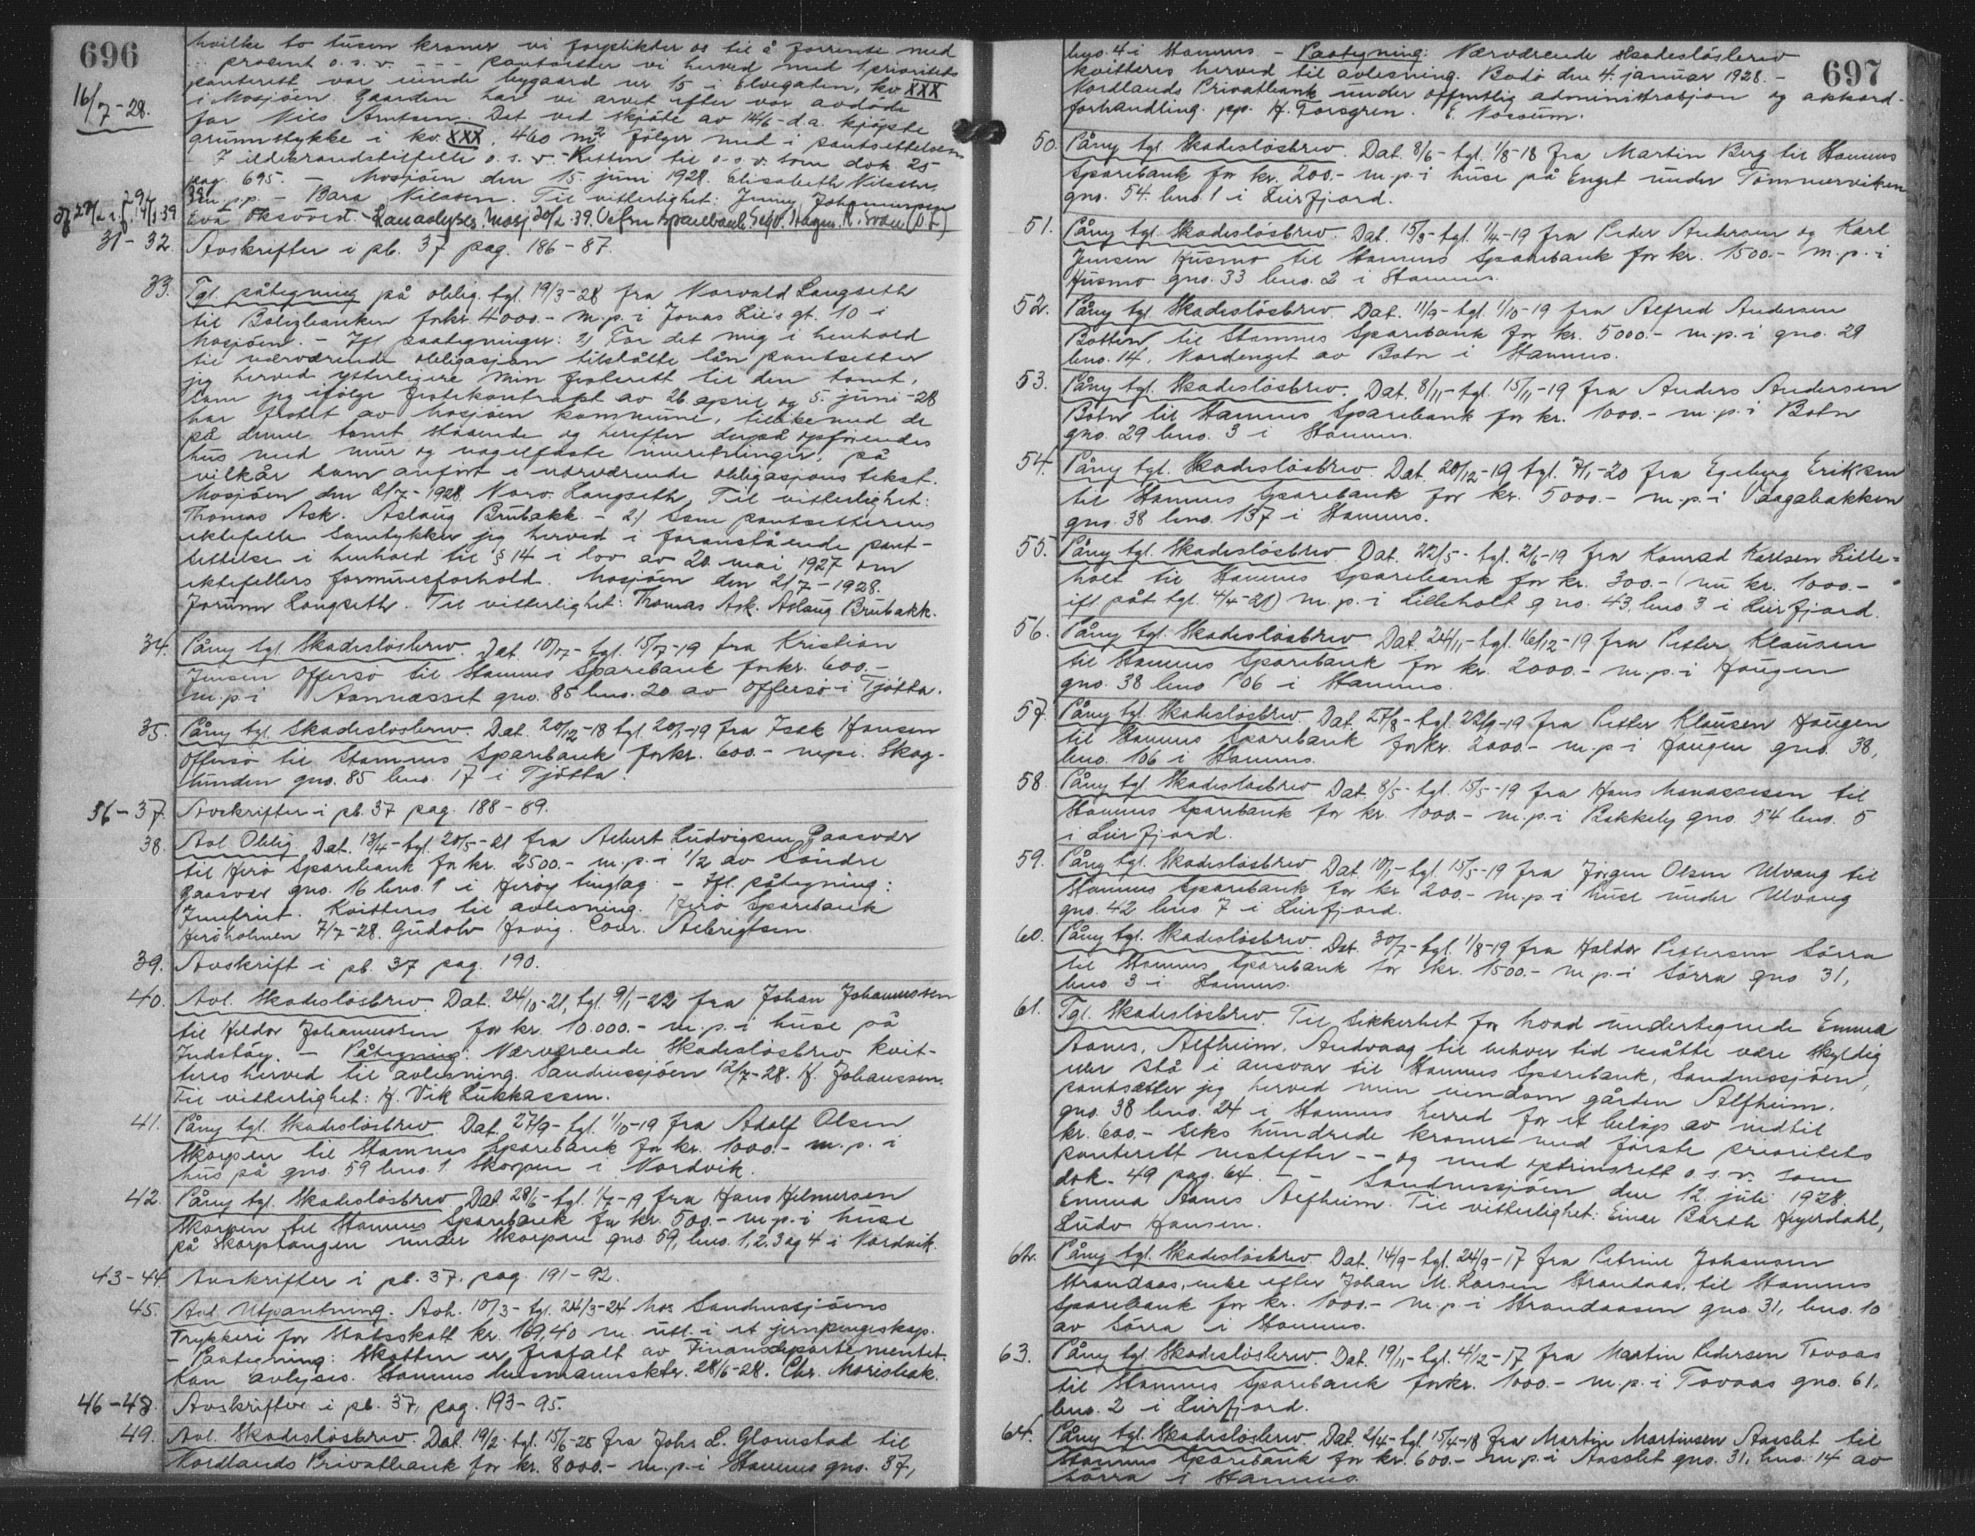 696
16/7-28.
hvilke to tusen kroner vi forplikter os til å forrente med
procent o.s.v. - - - pantsetter vi herved med 1 prioritets
panterett vor eiende bygaard nr. 15 i Elvegaten, kv. XXX
i Mosjöen. Gaarden har vi arvet efter vor avdøde
far Nils Arntsen. Det ved skjöte av 14/6 d.a. kjöpte
grunnstykke i kv. XXX, 460 m² fölger med i pantsettelsen
I ildebrandstilfelle o.s.v. Retten til o.s.v. som dok. 25
pag. 695. - Mosjöen den 15 juni 1928. Elisabeth Nilssen
p.p. - Bara Nilssen. Til vitterlighet: Jenny Johannessen
Eva Oksvold.
31-32. Avskrifter i pb. 37 pag. 186-87.
33. Tgl. påtegning på oblig. tgl. 19/3-28 fra Norvald Langseth
til Boligbanken for kr. 4000.- m.p. i Jonas Lie's gt. 10 i
Mosjöen. - Ifl. paategninger: 1) For det mig i henhold
til nærværende obligasjon tilståtte lån pantsetter
jeg herved ytterligere min festerett til den tomt,
som jeg ifölge festekontrakt av 26 april og 5. juni-28
har festet av Mosjöen kommune, tillikemed de
på denne tomt stående og herefter derpå opförendes
hus med mur og nagelfaste innretninger, på
vilkår som anfört i nærværende obligasjons tekst.
Mosjöen den 2/7-1928. Norv. Langseth. Til vitterlighet:
Thomas Ask. Aslaug Brubakk. - 2) Som pantsetterens
ektefelle samtykker jeg herved i foranstående pant-
settelse i henhold til § 14 i lov av 20 mai 1927 om
ektefellers formuesforhold. Mosjöen den 2/7-1928.
Jorunn Langseth. Til vitterlighet: Thomas Ask. Aslaug Brubakk.
34. Påny tgl. Skadeslösbrev. Dat. 10/7- tgl. 15/7-19 fra Kristian
Jensen Offersö til Stamnes Sparebank for kr. 600.-
m.p. i Aannesset gno. 85 bno. 20 av Offersö i Tjötta.
35. Påny tgl. Skadeslösbrev. Dat. 20/12-18 tgl. 20/1-19 fra Isak Hansen
Offersö til Stamnes Sparebank for kr. 600.- m.p. i Skog-
lunden gno. 85 bno. 17 i Tjötta.
36-37. Avskrifter i pb. 37 pag. 188-89.
38. Avl. Oblig. Dat. 13/4- tgl. 20/5-21 fra Albert Ludvigsen Gaasvær
til Herö Sparebank for kr. 2500.- m.p. i 1/2 av Söndre
Gaasvær gno. 16 bno. 1 i Heröy tinglag. - Ifl. påtegning:
Innfriet. Kvitteres til avlesning. Herö Sparebank
Heröholmen 7/7-28. Gudolv Havig. Conr. Albrigtsen.
39. Avskrift i pb. 37 pag. 190.
40. Avl. Skadeslösbrev. Dat. 24/10-21, tgl. 9/1-22 fra Johan Johannessen
til Heldor Johannessen for kr. 10.000.- m.p. i huse på
Indstöy. - Påtegning: Nærværende Skadeslösbrev kvit-
teres herved til avlesning. Sandnessjöen 12/7-28. H. Johanssen.
Til vitterlighet: H. Vik Lukkassen.
41. Påny tgl. Skadeslösbrev. Dat. 27/9- tgl. 1/10-19 fra Adolf Olsen
Skorpen til Stamnes Sparebank for kr. 1000.- m.p. i
hus på gno. 59 bno. 1 Skorpen i Nordvik.
42. Påny tgl. Skadeslösbrev. Dat. 28/6- tgl. 1/7-19 fra Hans Helmersen
Skorpen til Stamnes Sparebank for kr. 500.- m.p. i huse
på Skorptangen under Skorpen gno 59, bno. 1, 2, 3 og 4 i Nordvik.
43-44. Avskrifter i pb. 37. pag. 191-92.
45. Avl. Utpantning. Avh. 10/3- tgl. 24/3-24 hos Sandnessjöens
Trykkeri for Statsskatt kr. 169,40 m. utl. i et jernpengeskap.
- Paategning: Skatten er frafalt av Finansdepartementet.
Kan avlyses. Stamnes lensmannsktr. 28/6-28. Chr. Moresbak.
46-48. Avskrifter i pb. 37, pag. 193-95.
49. Avl. Skadeslösbrev. Dat. 19/2- tgl. 15/6-25 fra Johs L. Glomstad til
Nordlands Privatbank for kr. 8000.- m.p. i Stamnes gno. 37,
697
bno. 4 i Stamnes. - Paategning: Nærværende skadeslösbrev
kvitteres herved til avlesning. Bodö den 4. januar 1928. -
Nordlands Privatbank under offentlig administrasjon og akkord-
forhandling. pp. H. Forsgren.
50. Påny tgl. Skadeslösbrev. Dat. 8/6- tgl. 1/8-18 fra Martin Berg til Stamnes
Sparebank for kr. 200.- m.p. i huse på Enget under Tömmerviken
gno. 54. bno. 1 i Leirfjord.
51. Påny tgl. Skadeslösbrev. Dat. 15/3- tgl. 1/4-19 fra Peder Andersen og Karl
Jensen Husmo til Stamnes Sparebank for kr. 1500.- m.p. i
Husmo gno. 33 bno. 2 i Stamnes.
52. Påny tgl. Skadeslösbrev. Dat. 11/9- tgl. 1/10-19 fra Alfred Andersen
Botten til Stamnes Sparebank for kr. 5000.- m.p. i gno. 29
bno. 14, Nordenget av Botn i Stamnes.
53. Påny tgl. Skadeslösbrev. Dat. 8/11- tgl. 15/11-19 fra Anders Andersen
Botn til Stamnes Sparebank for kr. 1000.- m.p. i Botn
gno. 29 bno. 3 i Stamnes.
54. Påny tgl. Skadeslösbrev. Dat. 20/12-19 tgl. 7/1-20 fra Egeberg Eriksen
til Stamnes Sparebank for kr. 5000.- m.p. i Vaagabakken
gno. 38 bno. 137 i Stamnes.
55. Påny tgl. Skadeslösbrev. Dat. 22/5- tgl. 2/6-19 fra Konrad Karlsen Lille-
holt til Stamnes Sparebank for kr. 300.- (nu kr. 1000.-
ifl påt tgl. 4/4-21) m.p. i Lilleholt gno. 43, bno 3 i Leirfjord.
56. Påny tgl. Skadeslösbrev. Dat. 24/11- tgl. 16/12-19 fra Petter Klausen
til Stamnes Sparebank for kr. 2000.- m.p. i Haugen
gno. 38 bno 106 i Stamnes.
57. Påny tgl. Skadeslösbrev. Dat. 27/8- tgl. 22/9-19 fra Petter Klausen Haugen
til Stamnes Sparebank for kr. 2000.- m.p. i Haugen gno. 38,
bno. 106 i Stamnes.
58. Påny tgl. Skadeslösbrev. Dat. 8/5- tgl. 15/5-19 fra Hans Manassesen til
Stamnes Sparebank for kr. 1000.- m.p. i Bakkeby gno. 54 bno. 5
i Leirfjord.
59. Påny tgl. Skadeslösbrev. Dat. tgl. 15/5-19 fra Jörgen Olsen Ulvang til
Stamnes Sparebank for kr. 200.- m.p. i huse under Ulvang
gno. 42 bno. 7 i Leirfjord.
60. Påny tgl. Skadeslösbrev. Dat. 30/7- tgl. 1/8-19 fra Haldor Pettersen Sörra
til Stamnes Sparebank for kr. 1500.- m.p. i Sörra gno 31,
bno 3 i Stamnes.
61. Tgl. Skadeslösbrev. Til sikkerhet for hvad undertegnede Emma
Aanes, Alfheim, Andvaag til enhver tid måtte være skyldig
eller stå i ansvar til Stamnes Sparebank, Sandnessjöen,
pantsætter jeg herved min eiendom gården Alfheim,
gno. 38 bno. 24 i Stamnes herred for et belöp av inntil
kr. 600.- seks hundrede kroner med förste prioritets
panterett nestefter - - og med optrinsrett o.s.v. som
dok. 49 pag. 64. - - Sandnessjöen den 12 juli 1928.
Emma Aanes Alfheim. Til vitterlighet: Einar Barth Heyerdahl,
Ludv Hansen.
62. Påny tgl. Skadeslösbrev. Dat. 14/9- tgl. 24/9-17 fra Petrine Johansen
Strandaas, enke efter Johan M. Larsen Strandaas, til Stamnes
Sparebank for kr. 1000.- m.p. i Strandaasen gno. 31, bno. 10
av Sörra i Stamnes.
63. Påny tgl. Skadeslösbrev. Dat. 19/11- tgl. 4/12-17 fra Martin Pedersen Tovaas
til Stamnes Sparebank for kr. 1000.- m.p. i Tovaas gno. 61,
bno. 2 i Leirfjord.
64. Påny tgl. Skadeslösbrev. Dat. 2/4- tgl. 15/4-18 fra Martin Martinsen Aasslet til
Stamnes Sparebank for kr. 600.- m.p. i Aasslet gno. 31, bno. 14 av
Sörra i Stamnes.